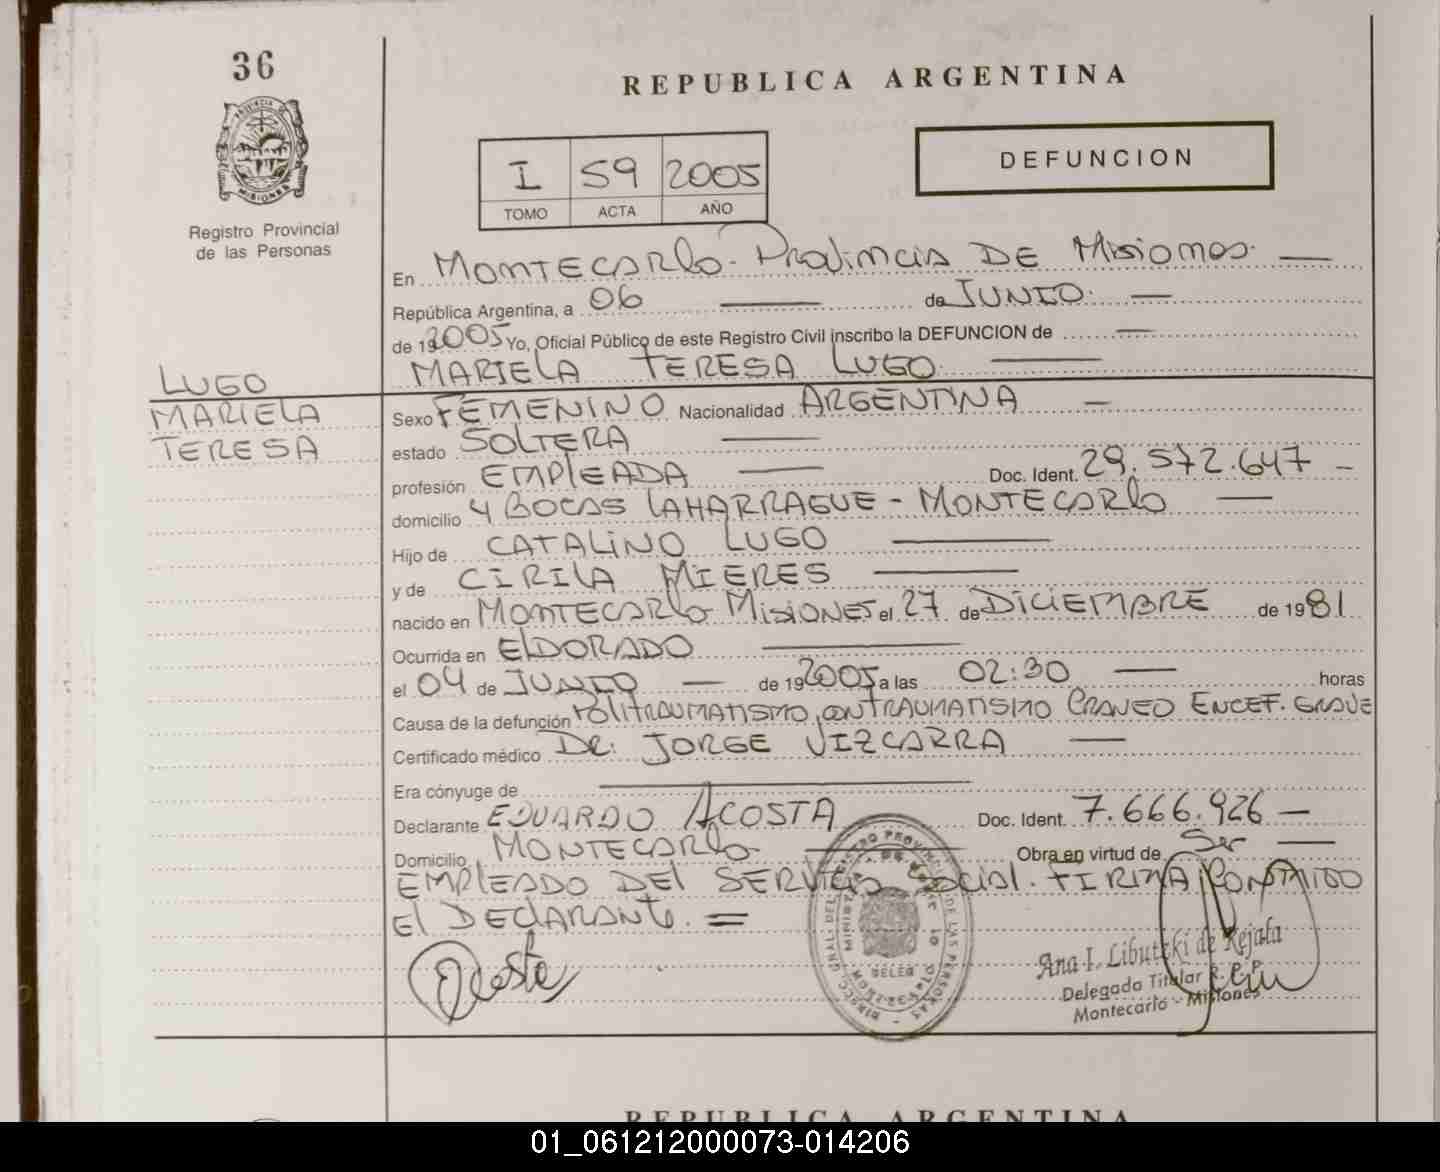 36
PROVINCIA DE
MISIONES
Registro Provincial
de las Personas
REPUBLICA ARGENTINA
I 59 2005
TOMO ACTA AÑO
DEFUNCION
En MONTECARLO - PROVINCIA DE MISIONES
República Argentina, a 06 de JUNIO
de 19 2005 Yo, Oficial Público de este Registro Civil inscribo la DEFUNCION de
MARIELA TERESA LUGO
LUGO
MARIELA
TERESA
Sexo FEMENINO Nacionalidad ARGENTINA
estado SOLTERA
profesión EMPLEADA Doc. Ident. 29.572.647
domicilio 4 BOCAS LAHARRAGUE - MONTECARLO
Hijo de CATALINO LUGO
y de CIRILA MIERES
nacido en MONTECARLO MISIONES el 27 de DICIEMBRE de 1981
Ocurrida en ELDORADO
el 04 de JUNIO de 19 2005 a las 02:30 horas
Causa de la defunción POLITRAUMATISMO, CON TRAUMATISMO CRANEO ENCEF. GRAVE
Certificado médico DR. JORGE VIZCARRA
Era cónyuge de
Declarante EDUARDO ACOSTA Doc. Ident. 7.666.926
Domicilio MONTECARLO Obra en virtud de Ser
EMPLEADO DEL SERVICIO SOCIAL. FIRMA CONMIGO
El DECLARANTE.
Acosta
Ana I. Libutzki de Rejala
Delegada Titular R. P. P.
Montecarlo - Misiones
REPUBLICA ARGENTINA
01_061212000073-014206